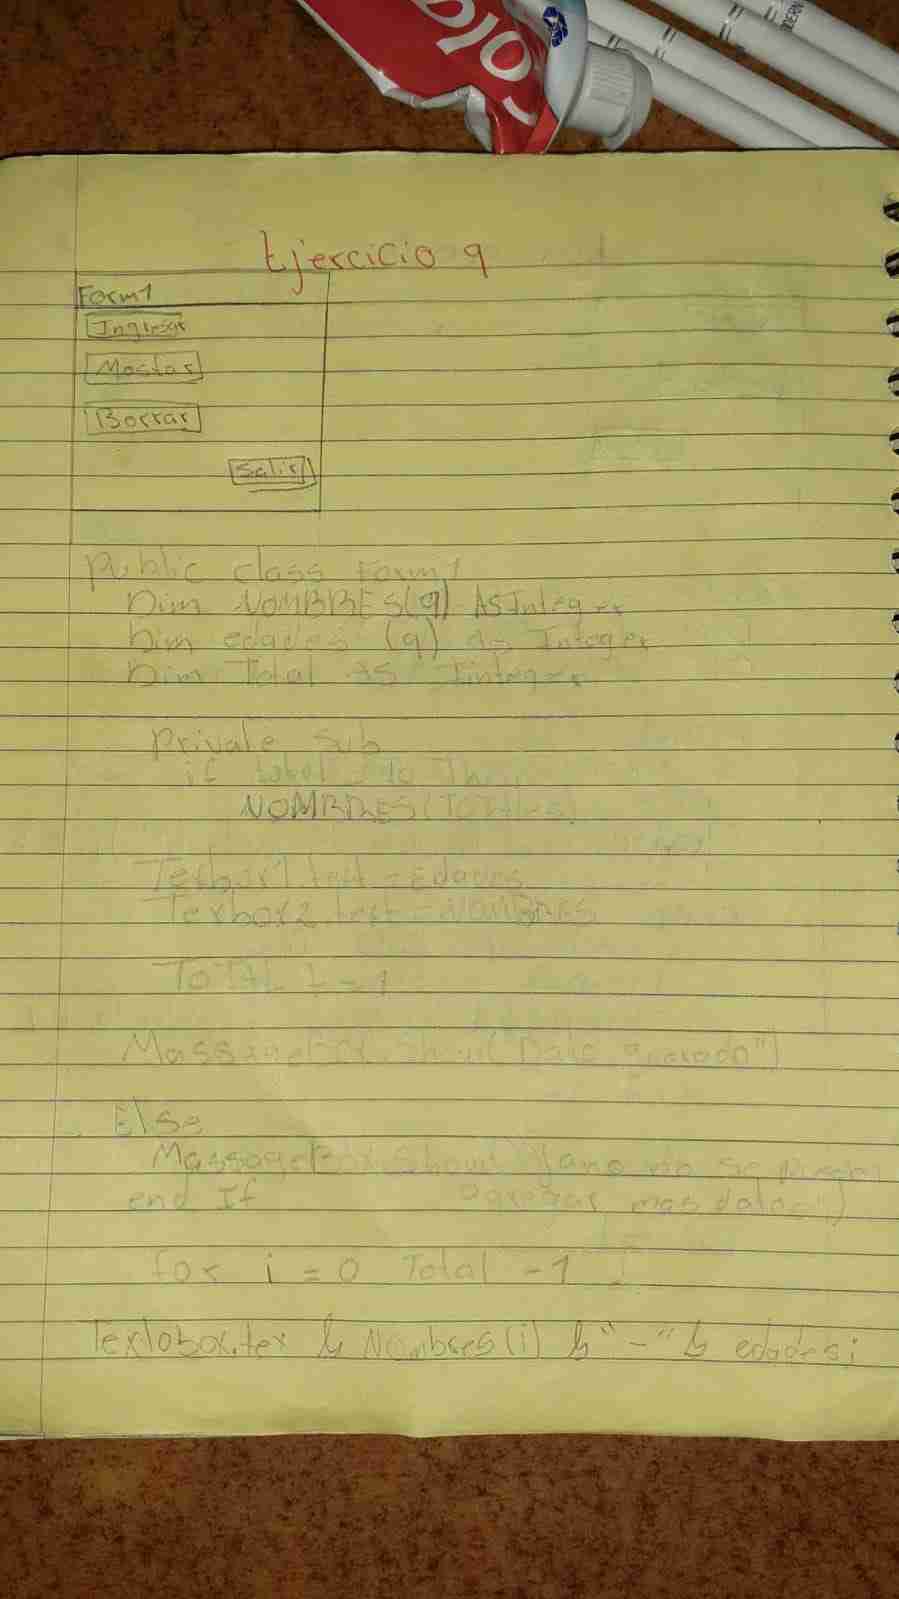 Colg
Ejercicio 9
Form1
Ingresar
Mostar
Borrar
Salir
Public class Form1
Dim NOMBRES(9) AS Integer
Dim edades (9) as Integer
Dim Total as Iinteger
Private Sub
if total 10 Then
NOMBRES(
Texbox1.text = Edades
Texbox2.text = NOMBRES
TOTAL + = 1
MassageBox.Show("Dato guardado")
Else
MassageBox.Show( Yano se pueden
end If agregar mas datos")
for i = 0 Total -1
Textobox.tex & Nombres(i) & "-" & edades i